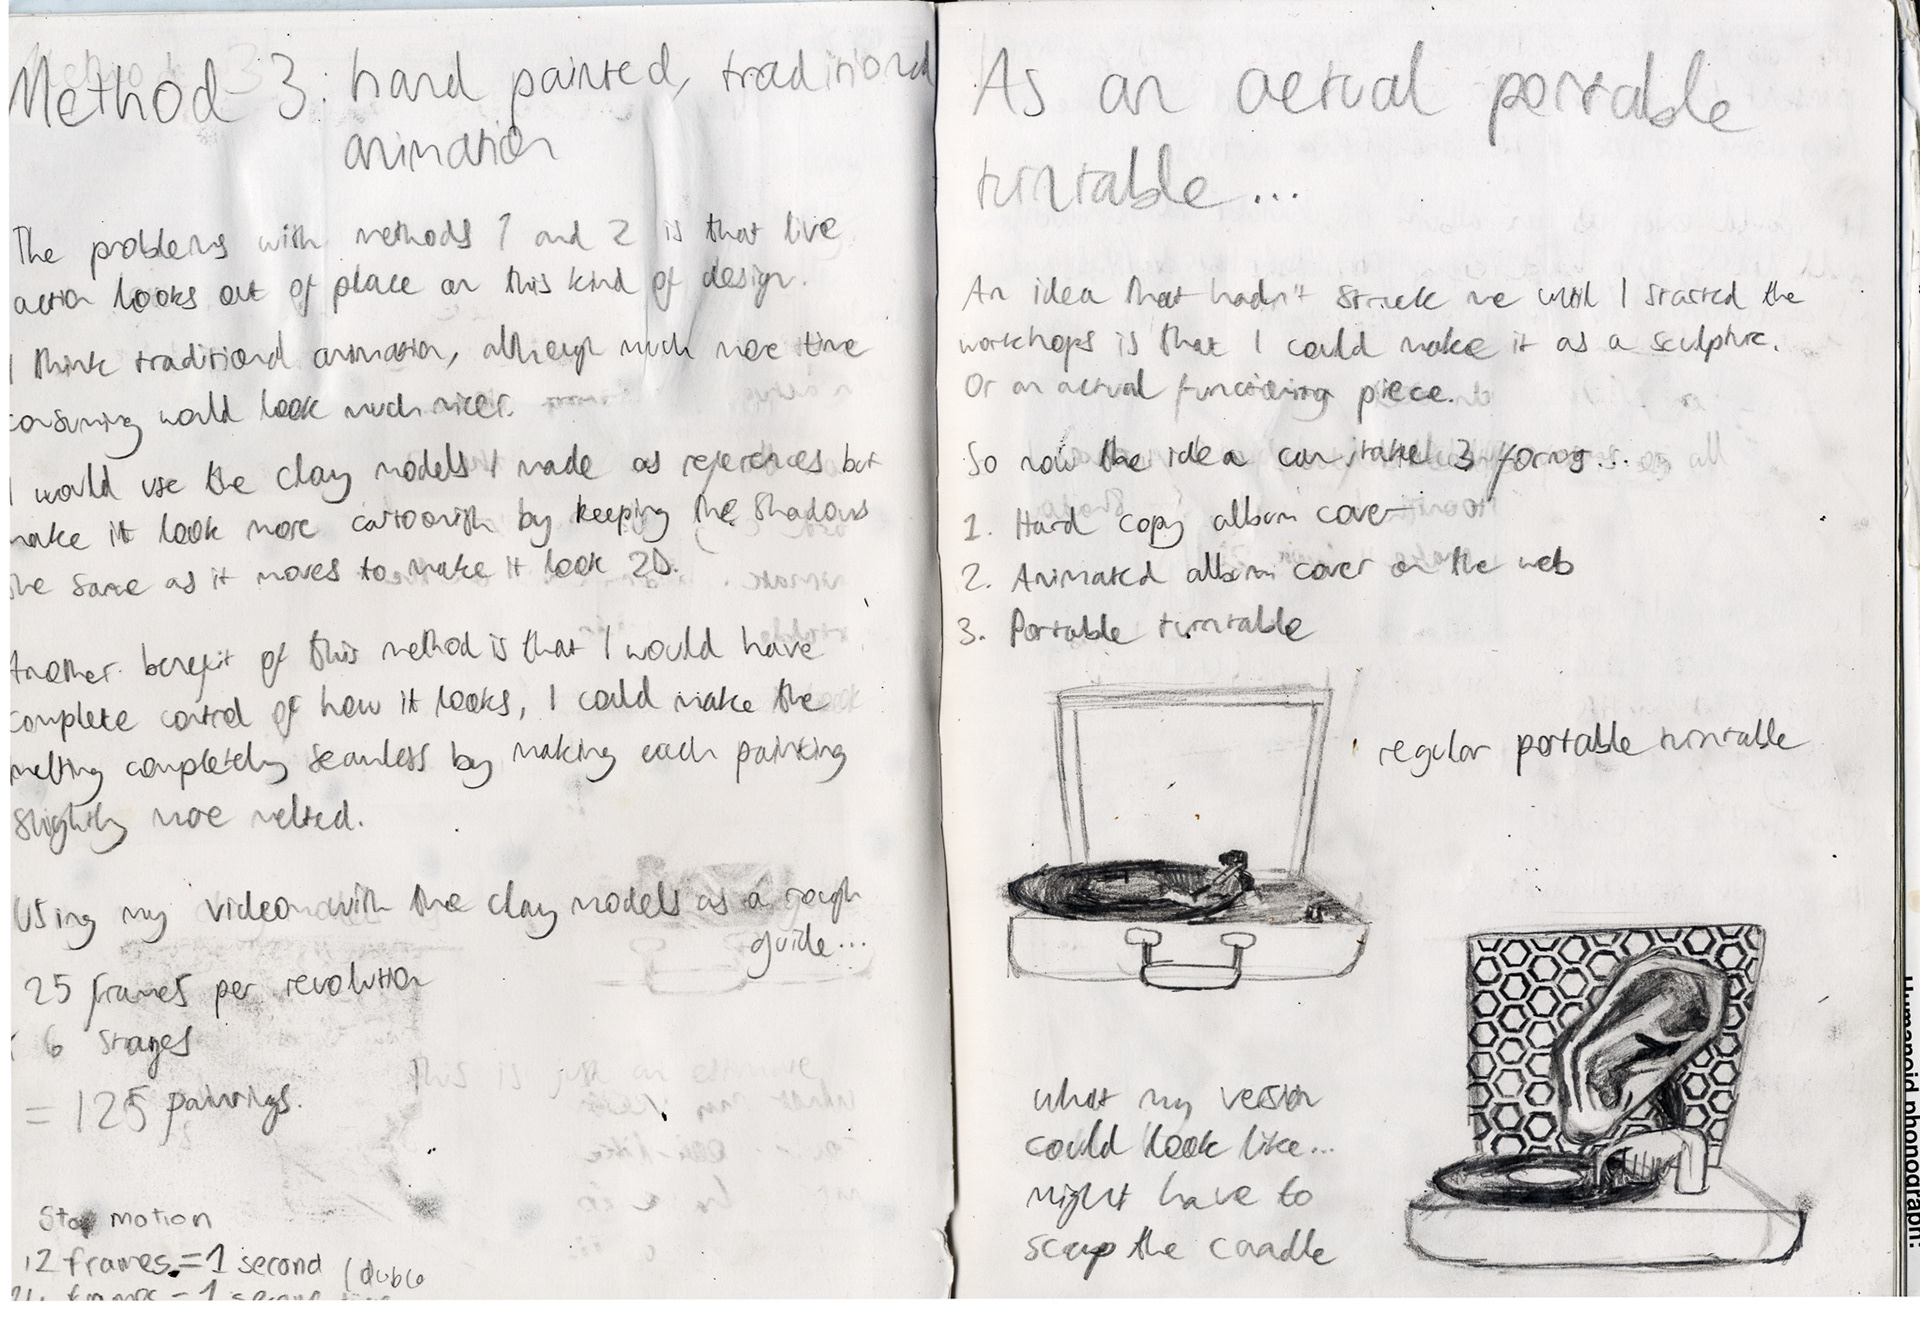 Method 3: hand painted, traditional
animation
The problems with methods 1 and 2 is that live
action looks out of place on this kind of design.
I think traditional animation, although much more time
consuming would look much nicer.
I would use the clay models I made as references but
make it look more cartoonish by keeping the shadows
the same as it moves to make it look 2D.
Another benefit of this method is that I would have
complete control of how it looks, I could make the
melting completely seamless by making each painting
slightly more melted.
Using my video with the clay models as a rough
guide...
25 frames per revolution
x 6 stages
= 125 paintings.
This is just an estimate
Stop motion
12 frames = 1 second (double
24 frames = 1 second
As an actual portable
turntable...
An idea that hadn't struck me until I started the
workshops is that I could make it as a sculpture.
Or an actual functioning piece.
So now the idea can take 3 forms...
1. Hard copy album cover
2. Animated album cover on the web
3. Portable turntable
regular portable turntable
what my version
could look like...
might have to
scrap the candle
Humanoid phonograph: